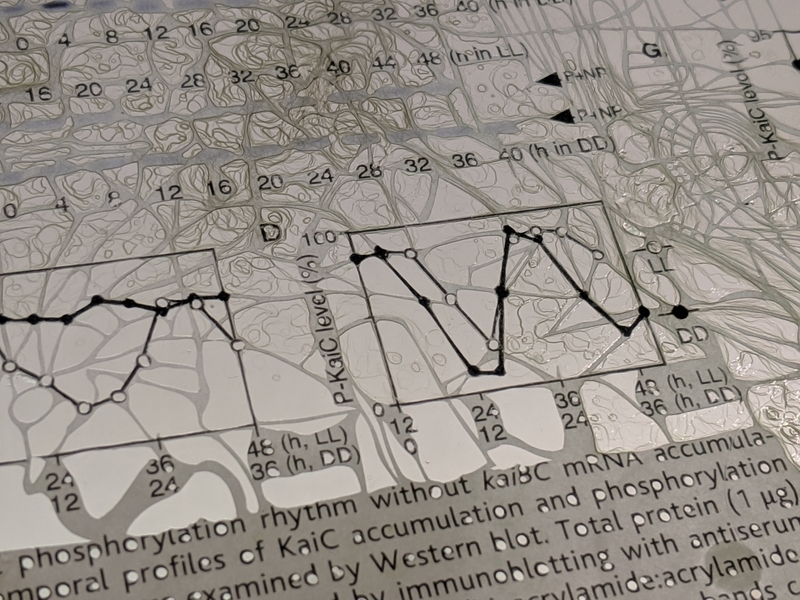 0 4 8 12 16 20 24 28 32 36 40 (h in LL)
16 20 24 28 32 36 40 44 48 (h in LL)
P+NP
G.
95
P+NP
0 4 8 12 16 20 24 28 32 36 40 (h in DD)
P-KaiC level (%)
D
100
P-KaiC level (%)
0
LL
DD
24 36 48 (h, LL)
12 24 36 (h, DD)
12 24 36 48 (h, LL)
0 12 24 36 (h, DD)
phosphorylation rhythm without kaiBC mRNA accumula-
mporal profiles of KaiC accumulation and phosphorylation
examined by Western blot. Total protein (1 µg)
by immunoblotting with antiserum
acrylamide:acrylamide
bands